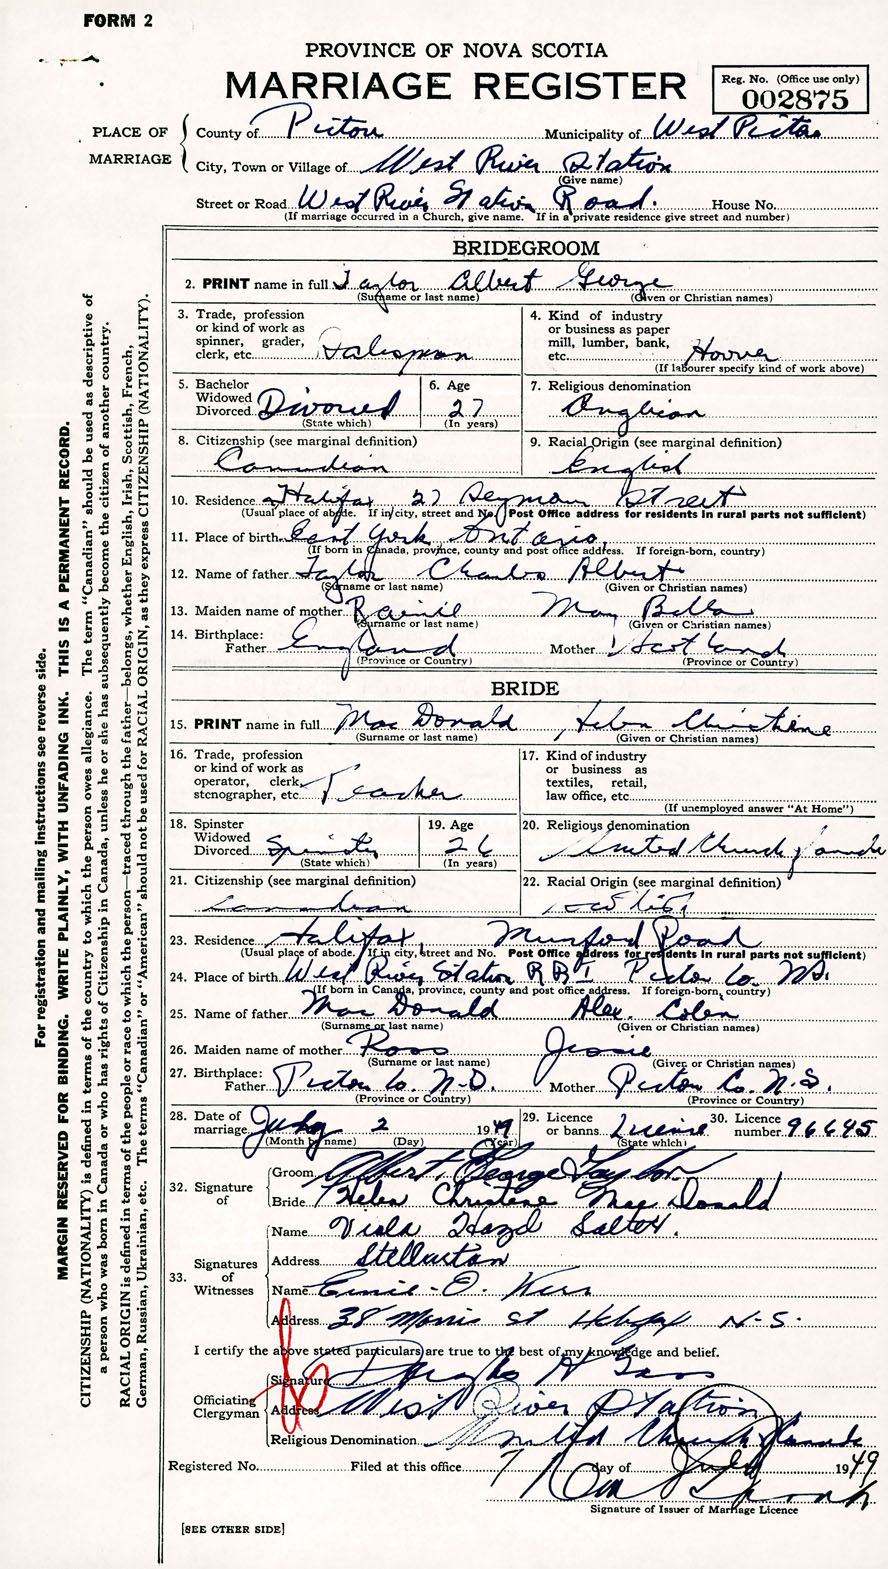 FORM 2
PROVINCE OF NOVA SCOTIA
MARRIAGE REGISTER
Reg. No. (Office use only)
002875
PLACE OF MARRIAGE
County of Pictou Municipality of West Pictou
City, Town or Village of West River Station
(Give name)
Street or Road West River Station Road. House No.
(If marriage occurred in a Church, give name. If in a private residence give street and number)
BRIDEGROOM
2. PRINT name in full Taylor Albert George
(Surname or last name) (Given or Christian names)
3. Trade, profession or kind of work as spinner, grader, clerk, etc. Salesman
4. Kind of industry or business as paper mill, lumber, bank, etc. Hoover
(If labourer specify kind of work above)
5. Bachelor Widowed Divorced Divorced
(State which)
6. Age 27
(In years)
7. Religious denomination Anglican
8. Citizenship (see marginal definition) Canadian
9. Racial Origin (see marginal definition) English
10. Residence Halifax 27 Seymour Street
(Usual place of abode. If in city, street and No. Post Office address for residents in rural parts not sufficient)
11. Place of birth East York Ontario
(If born in Canada, province, county and post office address. If foreign-born, country)
12. Name of father Taylor Charles Albert
(Surname or last name) (Given or Christian names)
13. Maiden name of mother May Bella
(Surname or last name) (Given or Christian names)
14. Birthplace: Father England Mother Scotland
(Province or Country) (Province or Country)
BRIDE
15. PRINT name in full Mac Donald Helen Christine
(Surname or last name) (Given or Christian names)
16. Trade, profession or kind of work as operator, clerk, stenographer, etc. Teacher
17. Kind of industry or business as textiles, retail, law office, etc.
(If unemployed answer "At Home")
18. Spinster Widowed Divorced Spinster
(State which)
19. Age 26
(In years)
20. Religious denomination United Church of Canada
21. Citizenship (see marginal definition) Canadian
22. Racial Origin (see marginal definition)
23. Residence Halifax, Mumford Road
(Usual place of abode. If in city, street and No. Post Office address for residents in rural parts not sufficient)
24. Place of birth West River Station R R 1 Pictou Co. N.S.
(If born in Canada, province, county and post office address. If foreign-born, country)
25. Name of father Mac Donald Alex.
(Surname or last name) (Given or Christian names)
26. Maiden name of mother Ross Jessie
(Surname or last name) (Given or Christian names)
27. Birthplace: Father Pictou Co. N.S. Mother Pictou Co. N.S.
(Province or Country) (Province or Country)
28. Date of marriage July 2 1949
(Month by name) (Day) (Year)
29. Licence or banns License
(State which)
30. Licence number 96645
32. Signature of
Groom Albert George Taylor
Bride Helen Christine Mac Donald
33. Signatures of Witnesses
Name Viola Hazel
Address Stellarton
Name O.
Address 38 Morris St Halifax N-S.
I certify the above stated particulars are true to the best of my knowledge and belief.
Officiating Clergyman
Signature Douglas H
Address West River Station
Religious Denomination United Church of Canada
Registered No. Filed at this office 7 day of July 1949
Signature of Issuer of Marriage Licence
[SEE OTHER SIDE]
For registration and mailing instructions see reverse side.
MARGIN RESERVED FOR BINDING. WRITE PLAINLY, WITH UNFADING INK. THIS IS A PERMANENT RECORD.
CITIZENSHIP (NATIONALITY) is defined in terms of the country to which the person owes allegiance. The term "Canadian" should be used as descriptive of
a person who was born in Canada or who has rights of Citizenship in Canada, unless he or she has subsequently become the citizen of another country.
RACIAL ORIGIN is defined in terms of the people or race to which the person—traced through the father—belongs, whether English, Irish, Scottish, French,
German, Russian, Ukrainian, etc. The terms "Canadian" or "American" should not be used for RACIAL ORIGIN, as they express CITIZENSHIP (NATIONALITY).